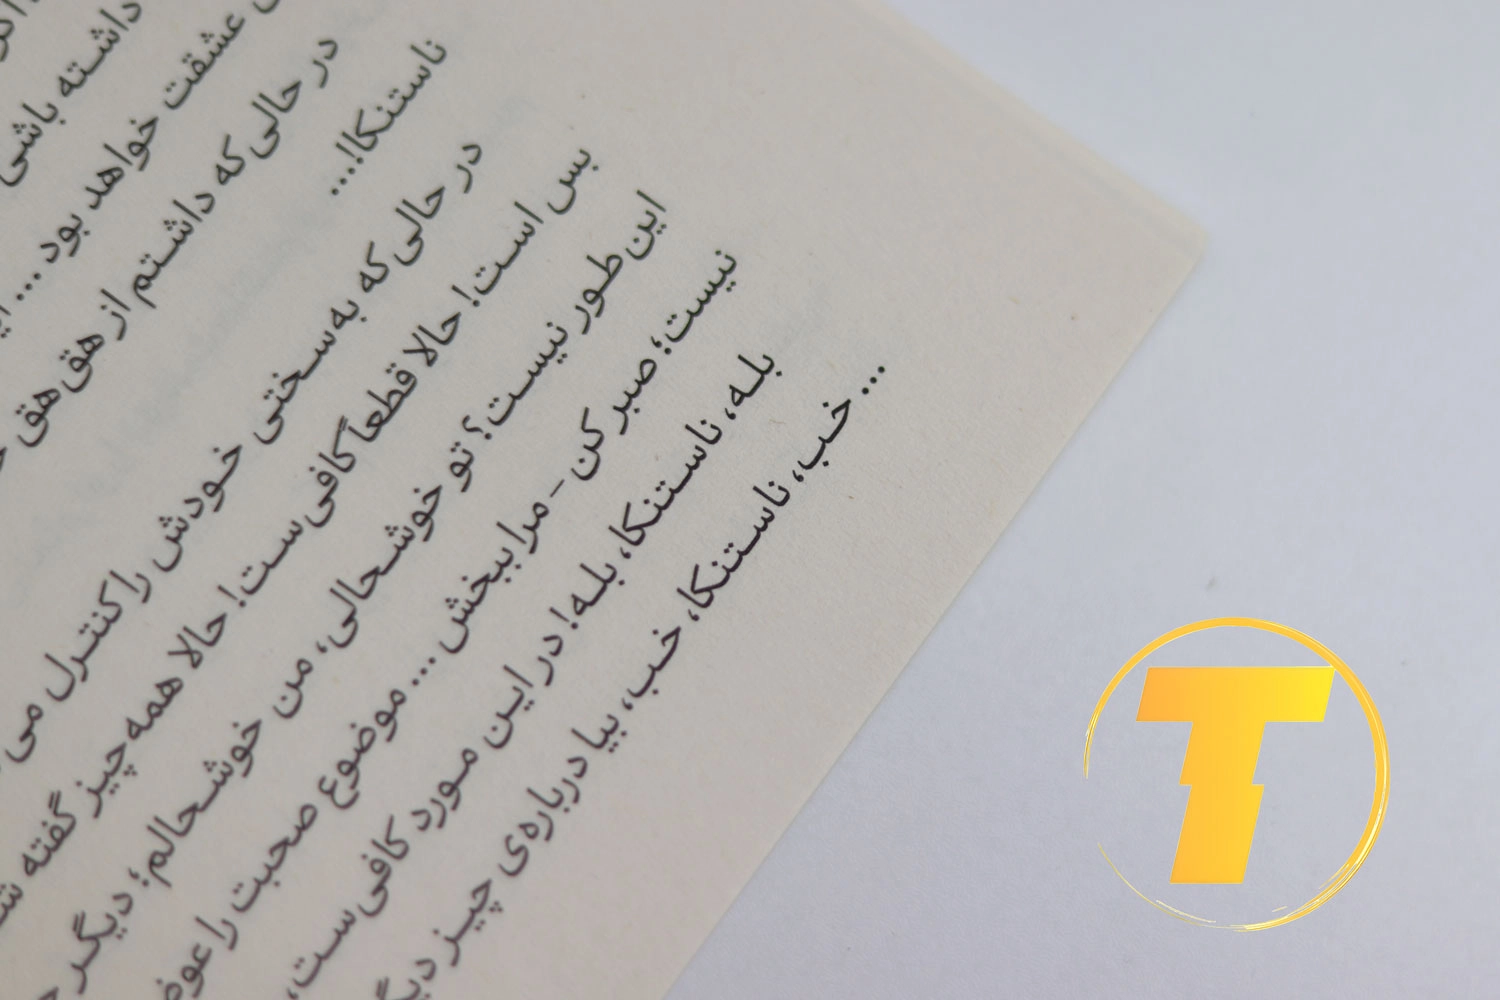 داشته باشی
عشقت خواهد بود ...
در حالی که داشتم از هق هق
ناستنکا!...
در حالی که به سختی خودش را کنترل می
بس است! حالا قطعاً کافی ست! حالا همه چیز گفته
این طور نیست؟ تو خوشحالی، من خوشحالم؛ دیگر
نیست؛ صبر کن - مرا ببخش ... موضوع صحبت را
بله، ناستنکا، بله! در این مورد کافی ست،
... خب، ناستنکا، خب، بیا درباره‌ی چیز
T